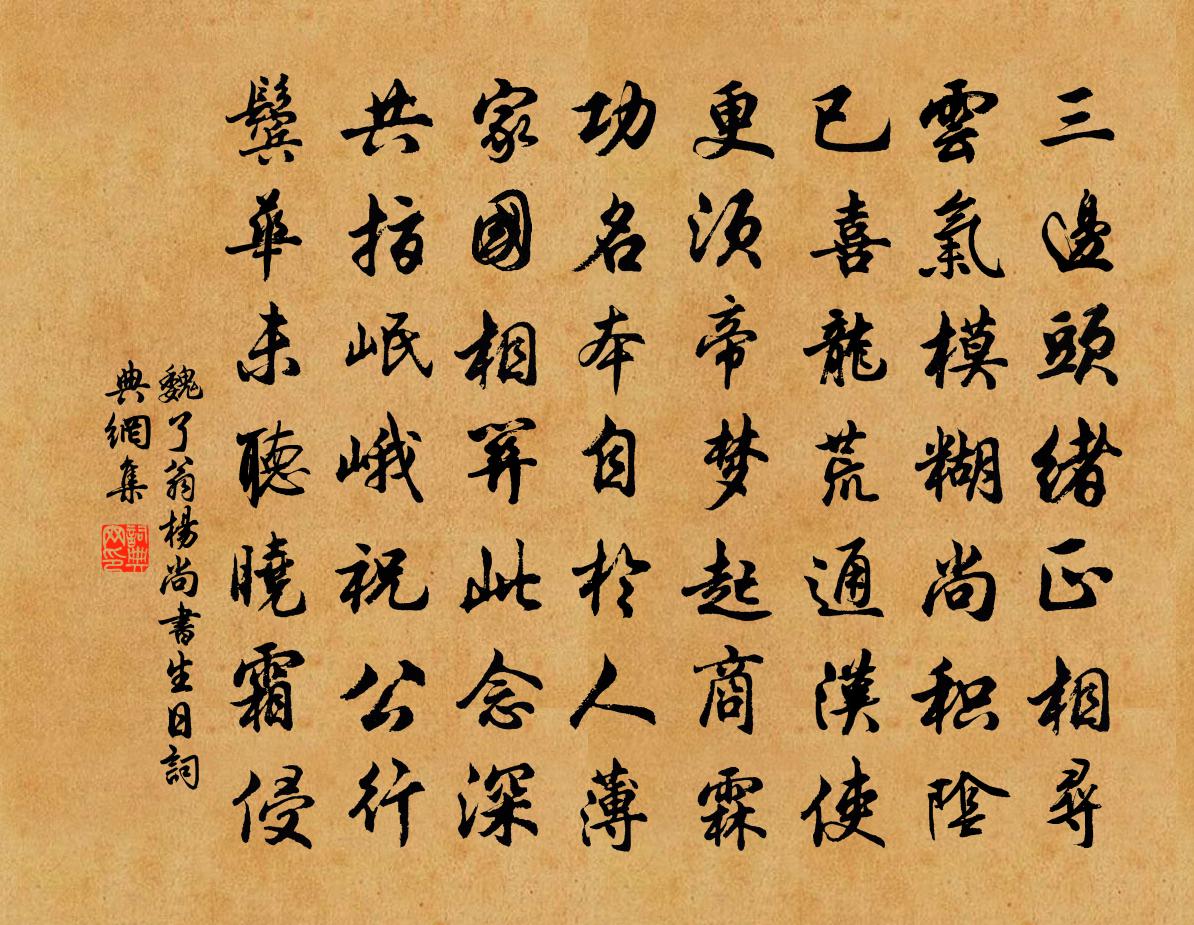 三邊頭緒正相尋
雲氣模糊尚积陰
已喜龍荒通漢使
更須帝梦起商霖
功名本自於人薄
家國相關此念深
共指岷峨祝公行
鬓華未聽曉霜侵
魏了翁楊尚書生日詞
典網集
詞典
网印